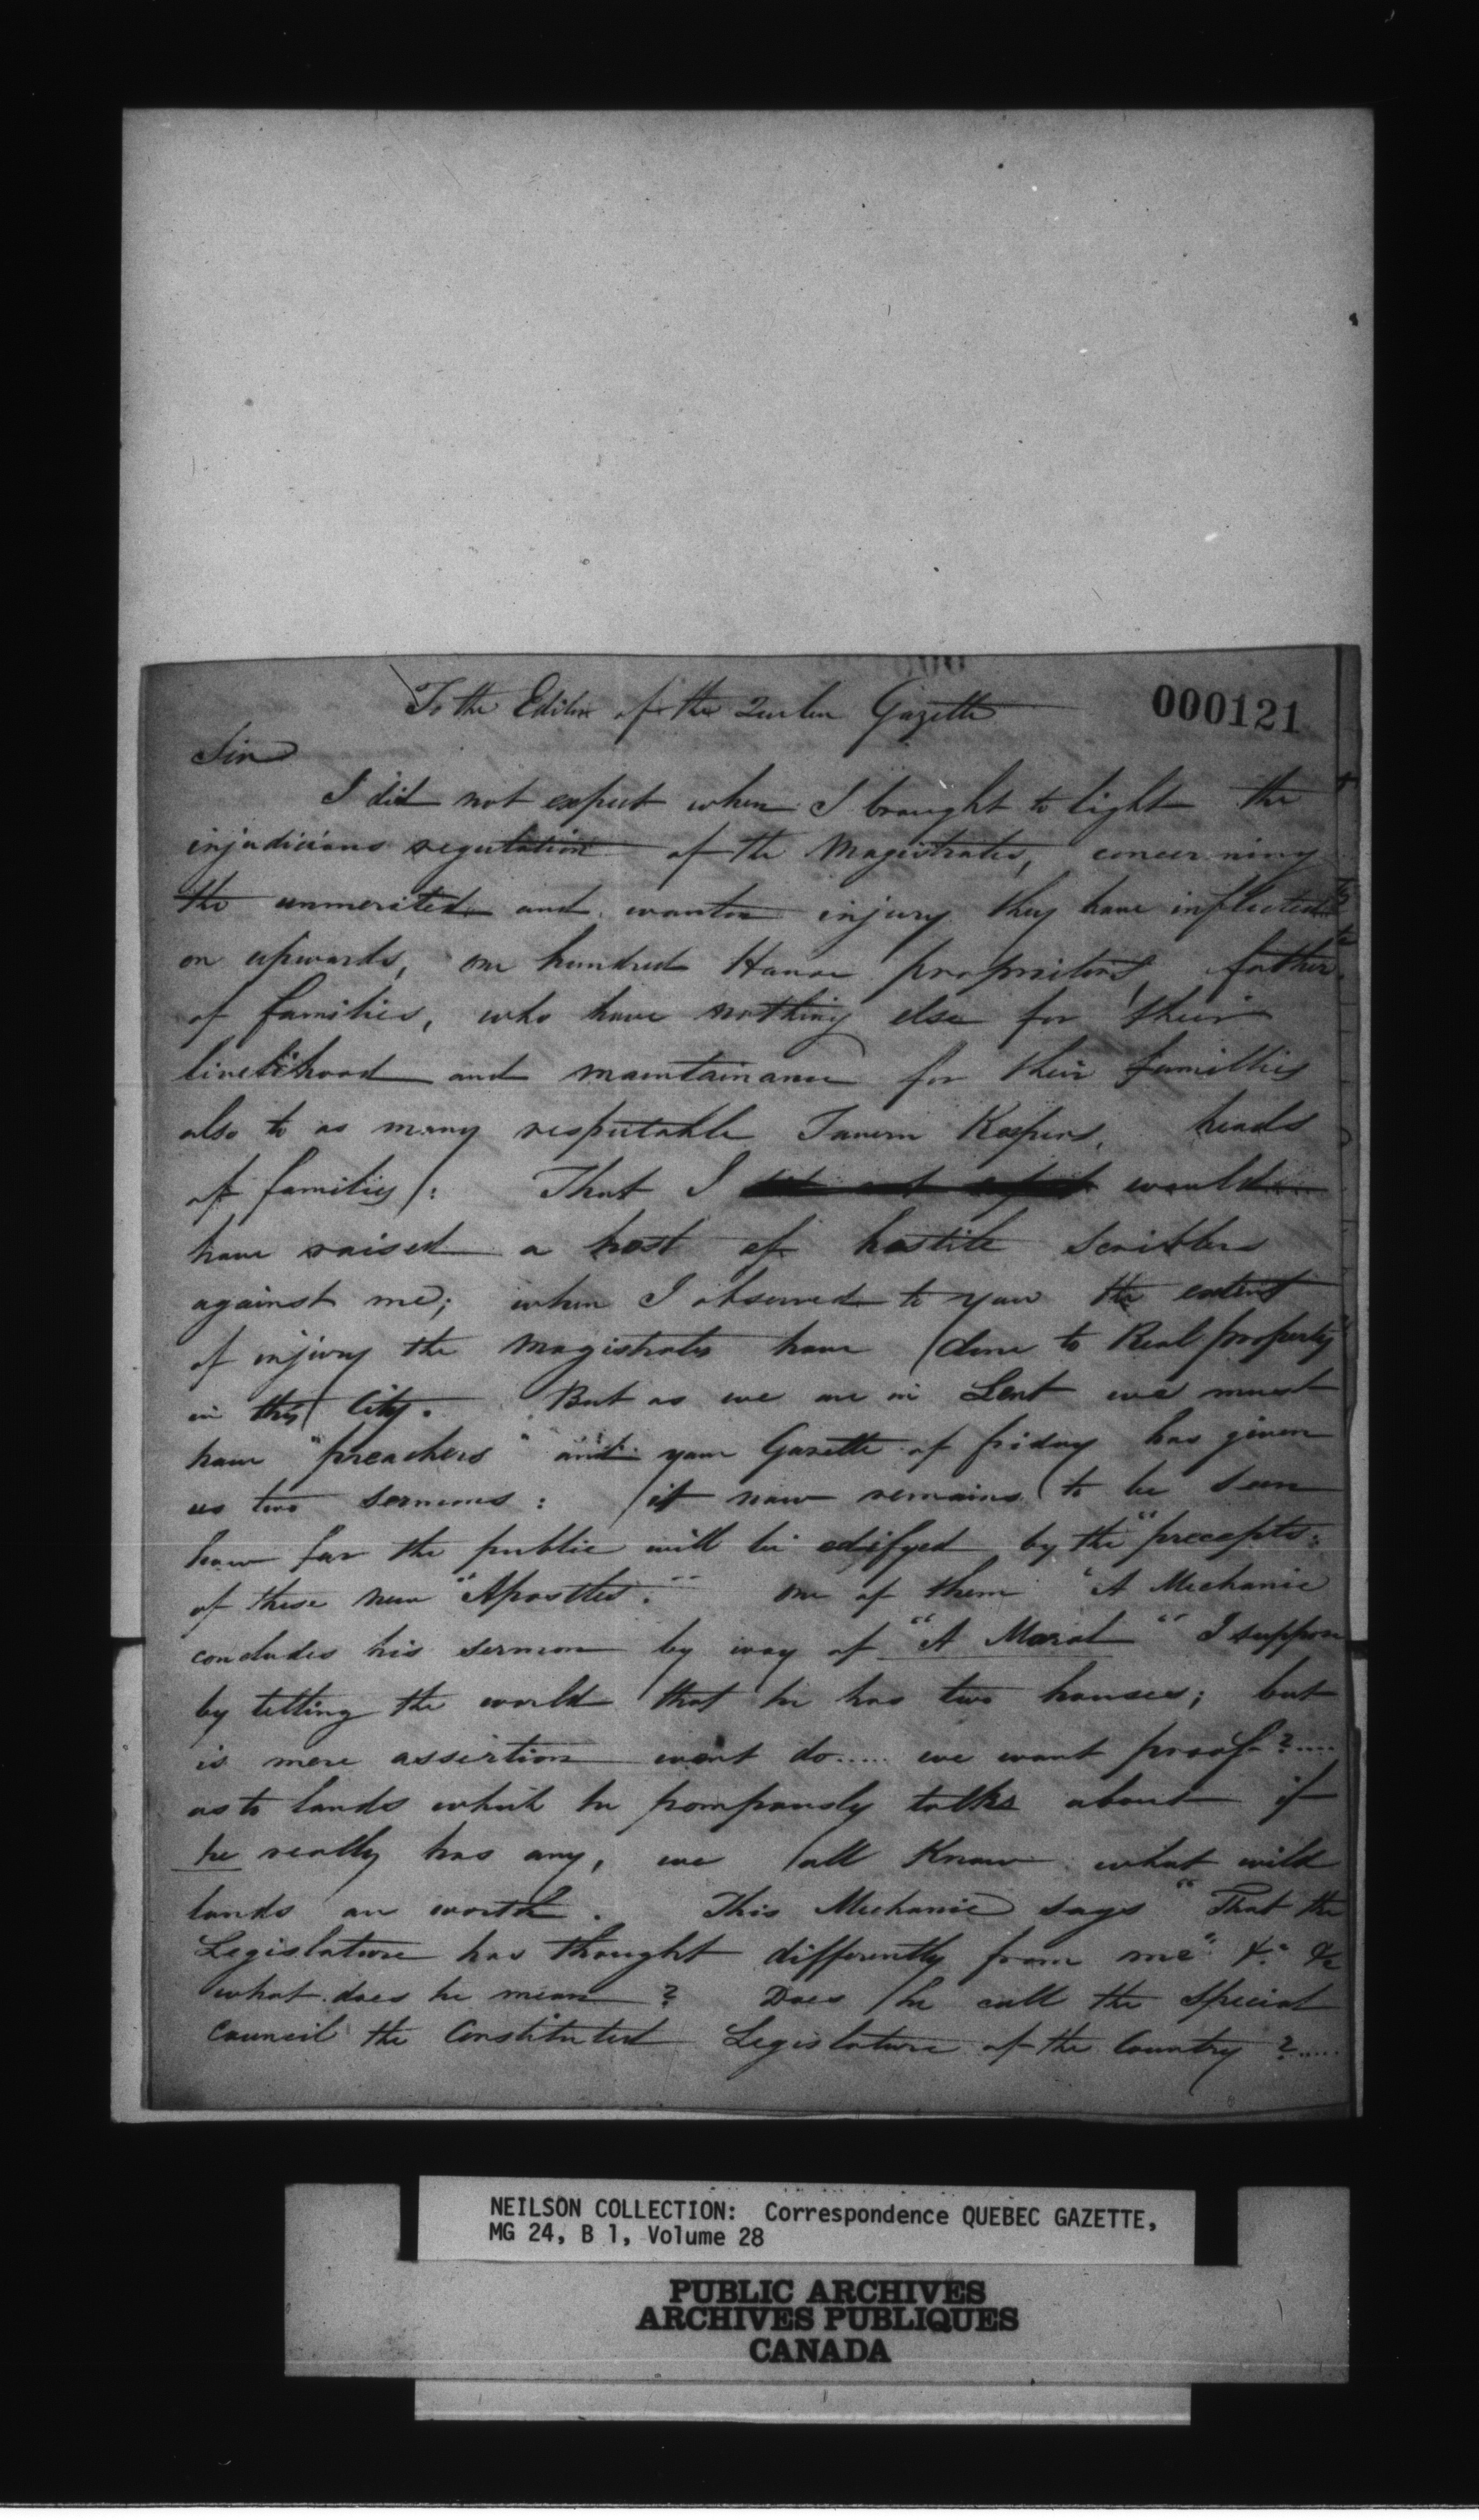 To the Editor of the Quebec Gazette
000121
Sir
I did not expect when I brought to light the
injudicious regulation of the Magistrates, concerning
the unmerited and wanton injury they have inflected
on upwards, one hundred House proprietors, father
of families, who have nothing else for their
livelihood and maintainance for their famillies
also to as many respectable Tavern Keepers, heads
of families /: That I would
have raised a host of hostile Scribblers
against me; when I observed to you the extent
of injury the Magistrates have done to Real property
in this City. But as we are in Lent we must
have "preachers" and your Gazette of friday has given
us two sermons: it now remains to be seen
how far the public will be edifyed by the "precepts"
of these new "Apostles." one of them "A Mechanic
concludes his sermon by way of "A Moral" I suppose
by telling the world that he has two houses; but
is mere assertion wont do..... we want proof?....
as to lands which he pompously talks about if
he really has any, we all Know what wild
lands are worth. This Mechanic says "That the
Legislature has thought differently from me" &c &c
what does he mean? Does he call the Special
Council the Constituted Legislature of the Country?.....
NEILSON COLLECTION: Correspondence QUEBEC GAZETTE,
MG 24, B 1, Volume 28
PUBLIC ARCHIVES
ARCHIVES PUBLIQUES
CANADA